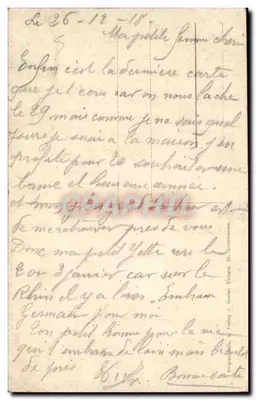 Le 26-12-18
Ma petite femme chérie
Enfin c'est la dernière carte
que je t'écris car on nous lache
le 29 mais comme je ne sais quel
jours je serai a la maison j'en
profite pour te souhaiter une
bonne et heureuse année.
et mon
de me retrouver près de vous
Donc ma petit Yette vers le
2 ou 3 janvier car sur le
Rhin il y a loin. Embrasse
Germain pour moi
Ton petit homme pour la vie
qui t'embrasse de loin mais bientôt
de près
Bonne santé